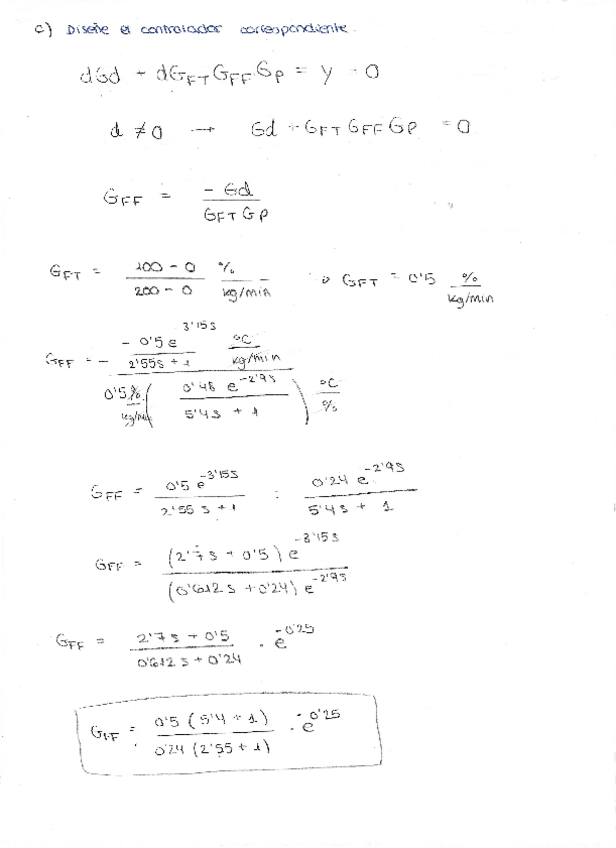 c) Diseñe el controlador correspondiente.
dGd + dG_FT G_FF Gp = y = 0
d ≠ 0 → Gd + G_FT G_FF Gp = 0
G_FF = - Gd / G_FT Gp
G_FT = 100 - 0 / 200 - 0 % / kg/min ⇒ G_FT = 0'5 % / kg/min
G_FF = - - 0'5 e^3'15s / 2'55s + 1 °C / kg/min / 0'5 % / kg/min ( 0'48 e^-2'9s / 5'4s + 1 ) °C / %
G_FF = 0'5 e^-3'15s / 2'55 s + 1 : 0'24 e^-2'9s / 5'4s + 1
G_FF = (2'7s + 0'5) e^-3'15s / (0'612s + 0'24) e^-2'9s
G_FF = 2'7s + 0'5 / 0'612s + 0'24 · e^-0'25
G_FF = 0'5 (5'4 + 1) / 0'24 (2'55 + 1) · e^-0'25